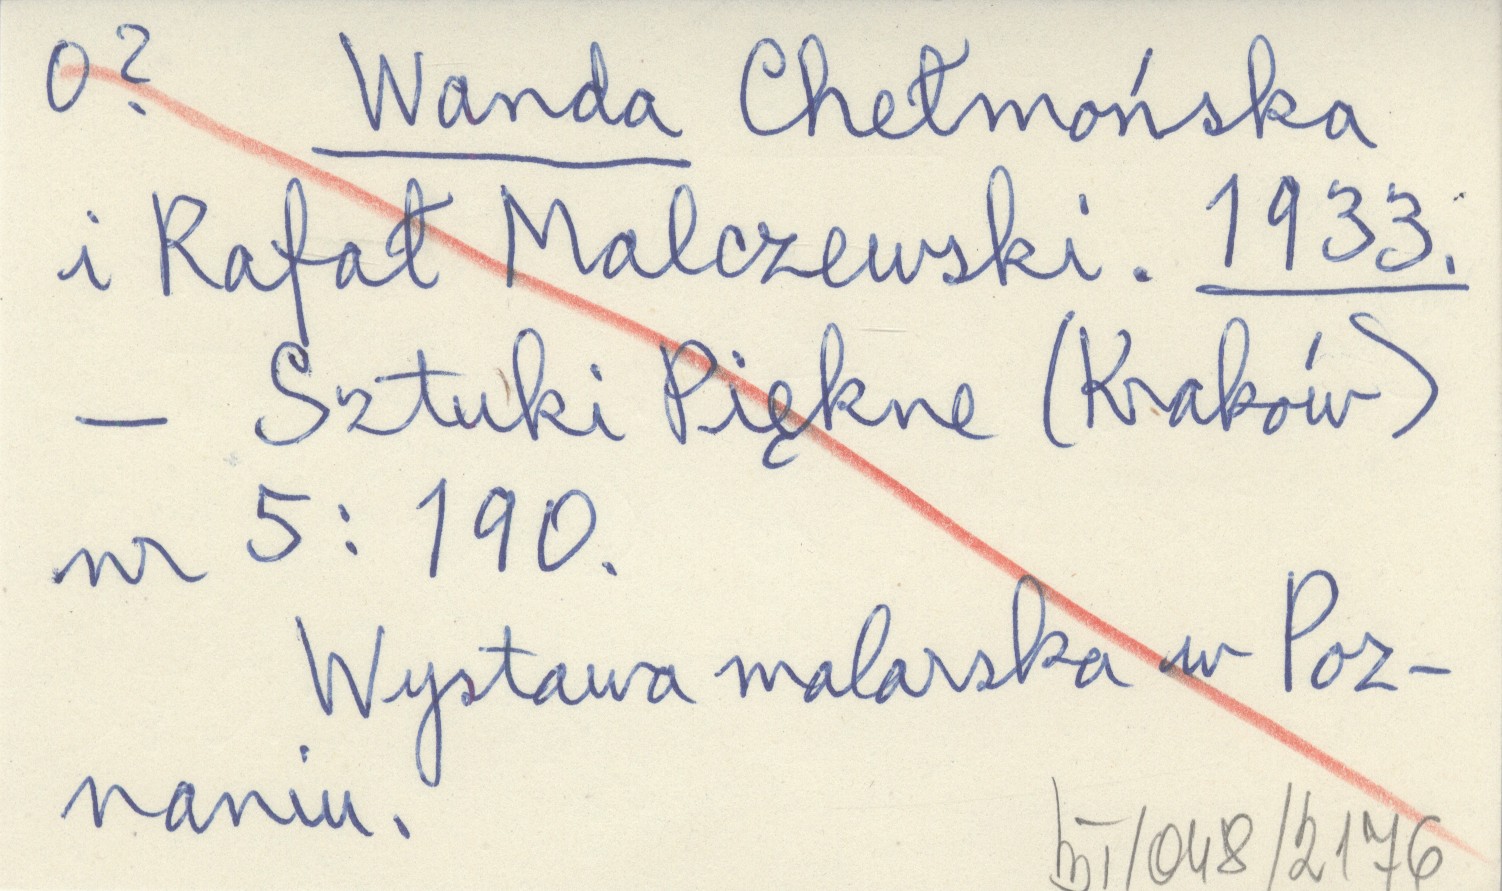 0? Wanda Chełmońska
i Rafał Malczewski. 1933.
— Sztuki Piękne (Kraków)
nr 5: 190.
Wystawa malarska w Poz-
naniu.
/048/2176